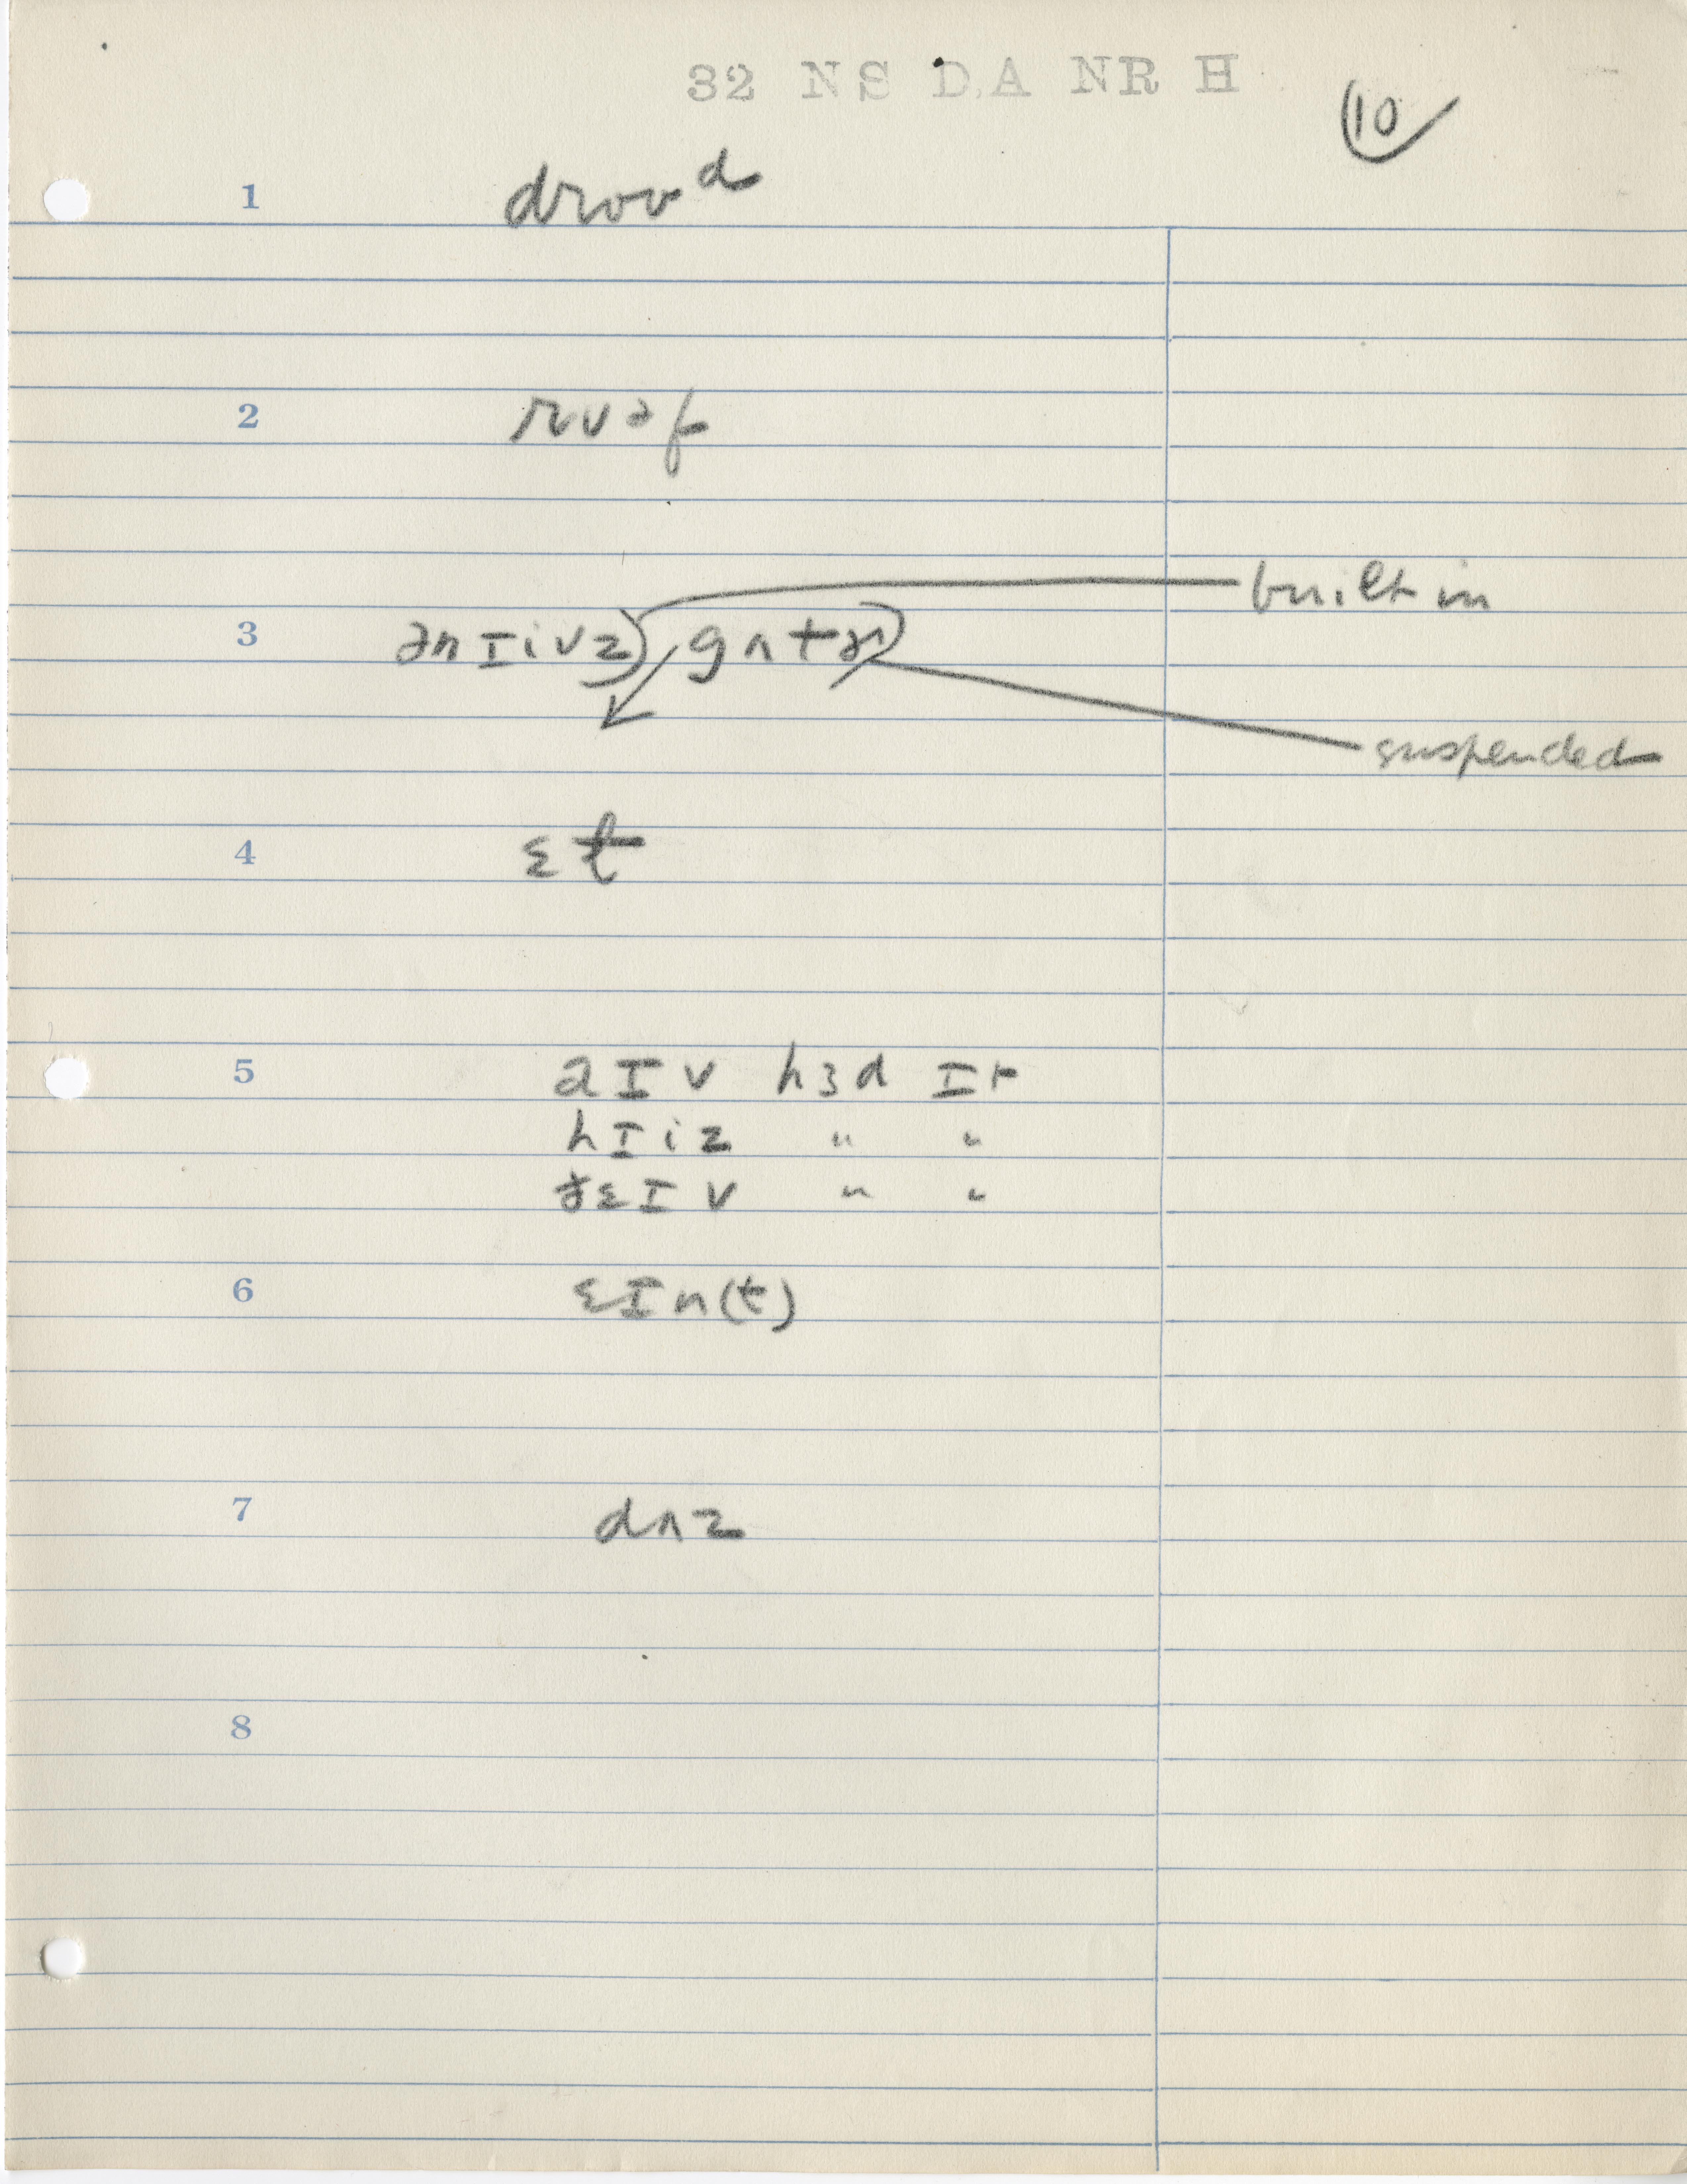 32 NS DA NR H
10
1 droʊd
2 ruəf
built in
3 ənɪivz gʌtɚ
suspended
4 ɛt
5 aɪv hɜd ɪt
hɪiz " "
ðɛɪv " "
6 ɛɪn(t)
7 dʌz
8